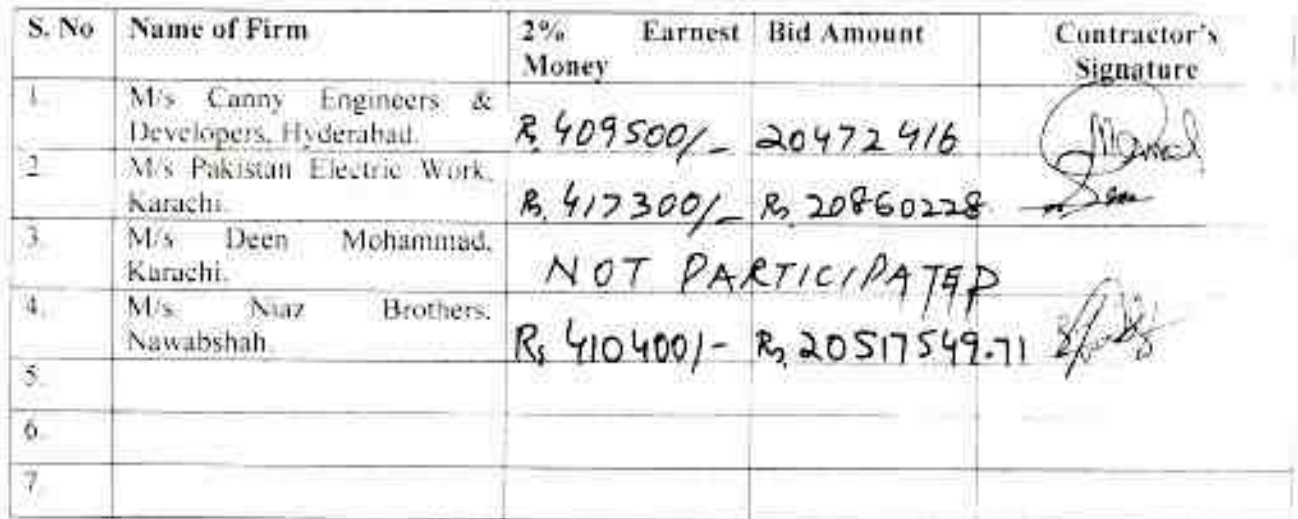 S. No Name of Firm 2% Earnest Money Bid Amount Contractor's Signature
1. M/s Canny Engineers &
Developers, Hyderabad. Rs 409500/- 20472416
2. M/s Pakistan Electric Work,
Karachi. Rs. 417300/- Rs 20860228
3. M/s Deen Mohammad,
Karachi. NOT PARTICIPATED
4. M/s. Niaz Brothers,
Nawabshah. Rs 410400/- Rs. 20517549.71
5.
6.
7.